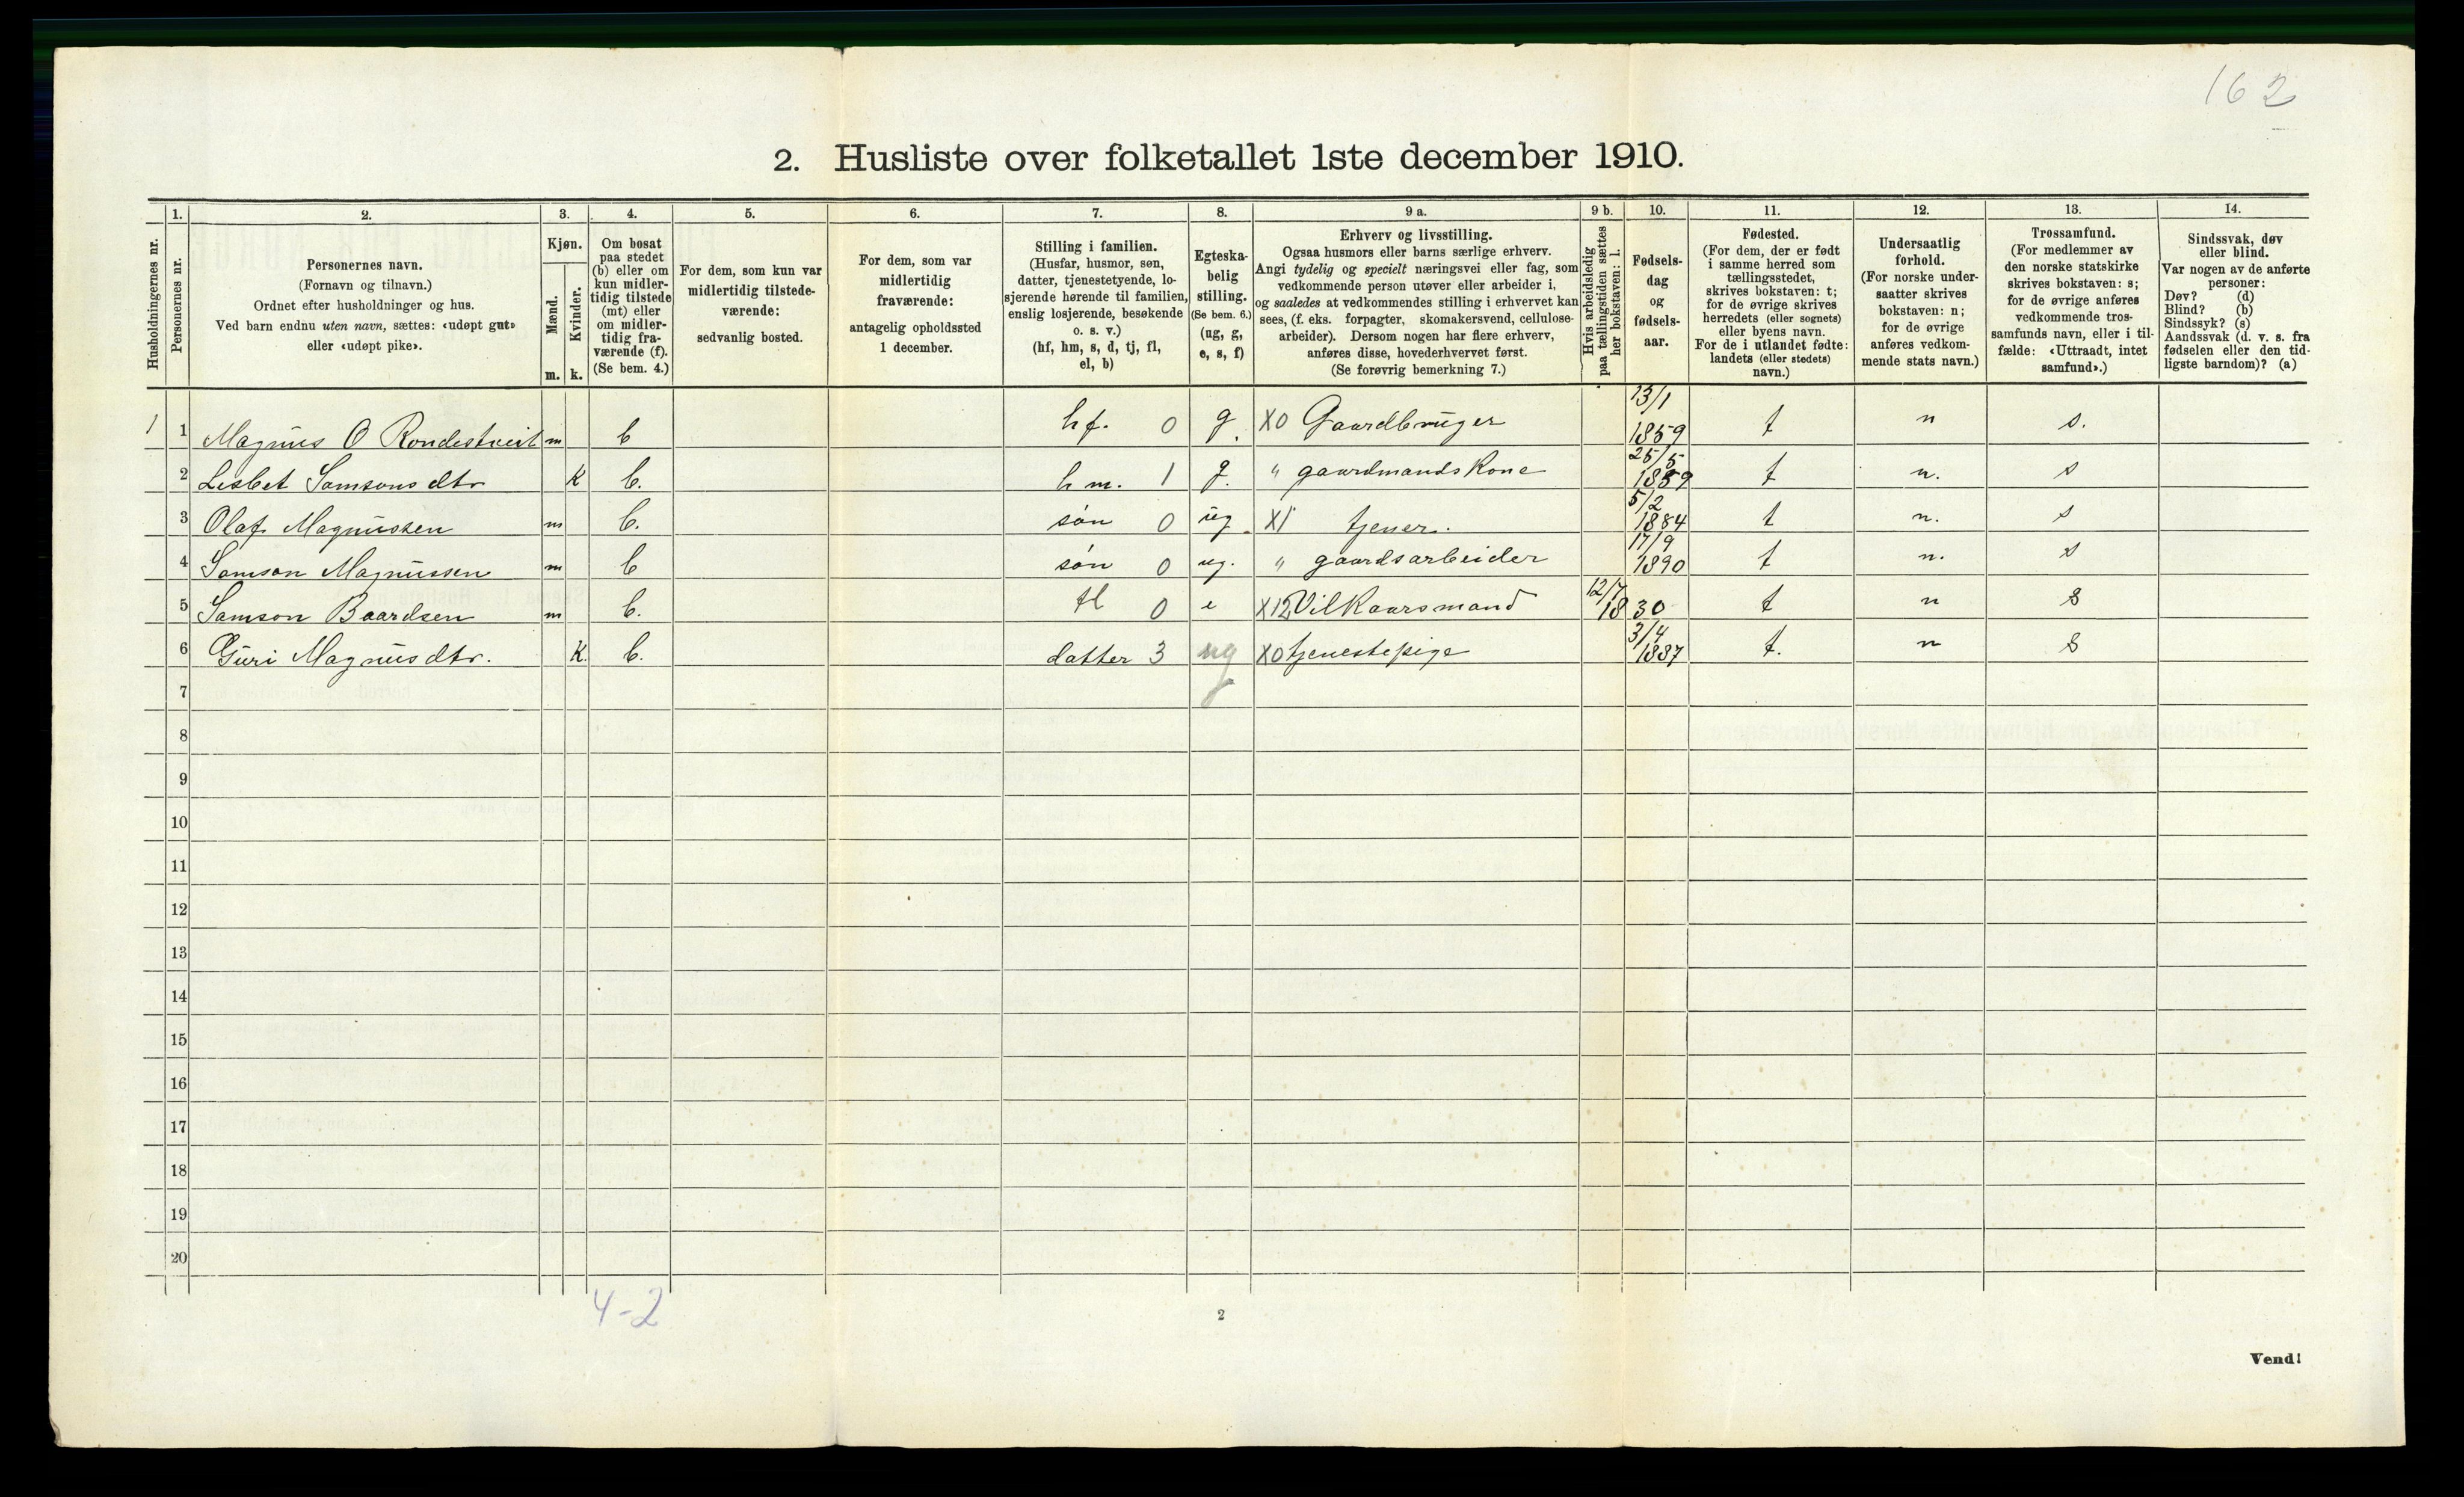 162
2. Husliste over folketallet 1ste december 1910.
Husholdningernes nr.
1.
Personernes nr.
2.
Personernes navn.
(Fornavn og tilnavn.)
Ordnet efter husholdninger og hus.
Ved barn endnu uten navn, sættes: «udøpt gut»
eller «udøpt pike».
3.
Kjøn.
Mænd.
Kvinder.
m. k.
4.
Om bosat
paa stedet
(b) eller om
kun midler-
tidig tilstede
(mt) eller
om midler-
tidig fra-
værende (f).
(Se bem. 4.)
5.
For dem, som kun var
midlertidig tilstede-
værende:
sedvanlig bosted.
6.
For dem, som var
midlertidig
fraværende:
antagelig opholdssted
1 december.
7.
Stilling i familien.
(Husfar, husmor, søn,
datter, tjenestetyende, lo-
sjerende hørende til familien,
enslig losjerende, besøkende
o. s. v.)
(hf, hm, s, d, tj, fl,
el, b)
8.
Egteska-
belig
stilling.
(Se bem. 6.)
(ug, g,
e, s, f)
9 a.
Erhverv og livsstilling.
Ogsaa husmors eller barns særlige erhverv.
Angi tydelig og specielt næringsvei eller fag, som
vedkommende person utøver eller arbeider i,
og saaledes at vedkommendes stilling i erhvervet kan
sees, (f. eks. forpagter, skomakersvend, cellulose-
arbeider). Dersom nogen har flere erhverv,
anføres disse, hovederhvervet først.
(Se forøvrig bemerkning 7.)
9 b.
Hvis arbeidsledig
paa tællingstiden sættes
her bokstaven: l.
10.
Fødsels-
dag
og
fødsels-
aar.
11.
Fødested.
(For dem, der er født
i samme herred som
tællingsstedet,
skrives bokstaven: t;
for de øvrige skrives
herredets (eller sognets)
eller byens navn.
For de i utlandet fødte:
landets (eller stedets)
navn.)
12.
Undersaatlig
forhold.
(For norske under-
saatter skrives
bokstaven: n;
for de øvrige
anføres vedkom-
mende stats navn.)
13.
Trossamfund.
(For medlemmer av
den norske statskirke
skrives bokstaven: s;
for de øvrige anføres
vedkommende tros-
samfunds navn, eller i til-
fælde: «Uttraadt, intet
samfund».)
14.
Sindssvak, døv
eller blind.
Var nogen av de anførte
personer:
Døv? (d)
Blind? (b)
Sindssyk? (s)
Aandssvak (d. v. s. fra
fødselen eller den tid-
ligste barndom)? (a)
1 1 Magnus O Rondestveit m b hf. 0 g. X0 Gaardbruger 13/1 1859 t n s.
2 Lisbet Samsonsdtr K b. hm. 1 g. " gaardmandskone 25/5 1859 t n. s
3 Olaf Magnussen m b. søn 0 ug. X1 tjener. 5/2 1884 t n. s
4 Samson Magnussen m b søn 0 ug. " gaardsarbeider 17/9 1890 t n. s
5 Samson Baardsen m b. fl 0 e X12 Vilkaarsmand 12/7 1830 t n s
6 Guri Magnusdtr. K. b. datter 3 ug X0 tjenestepige 3/4 1887 t. n s
7
8
9
10
11
12
13
14
15
16
17
18
19
20
4-2
2
Vend!